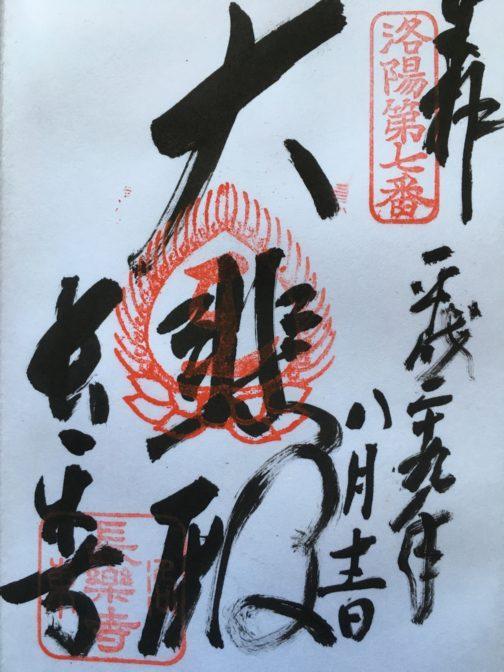 奉拝
洛陽第七番
平成二十九年
八月
大悲殿
長楽寺
長樂寺